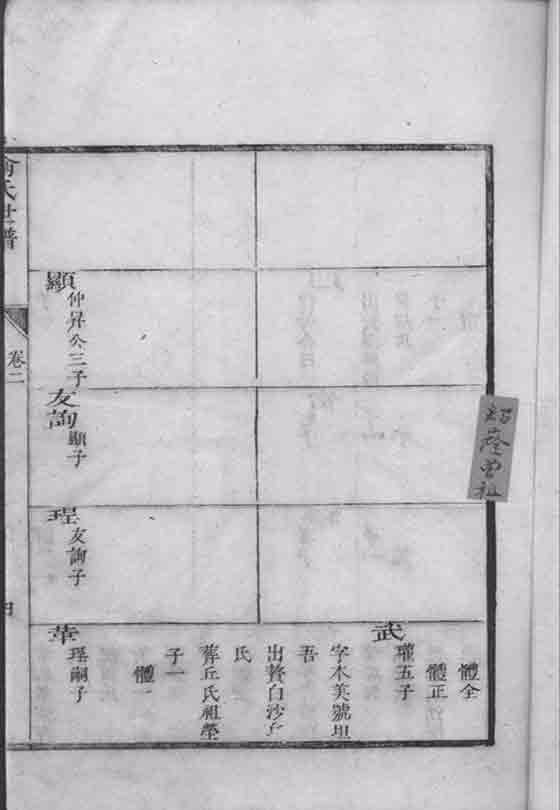 體全
體正
武
瓘五子
字木美號坦
吾
出贅白沙丘
氏
葬丘氏祖塋
子一
體一
顯
仲昇公三子
友詢
顯子
珵
友詢子
華
珵嗣子
俞氏世譜
卷二
四